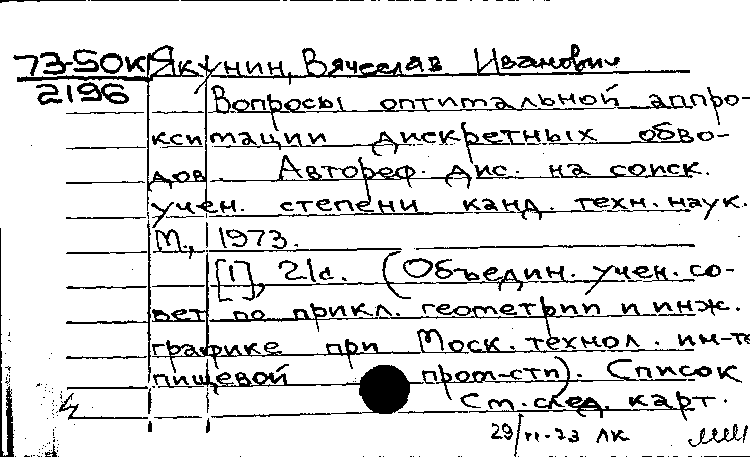 73-50К Якунин, Вячеслав Иванович
2196
Вопросы оптимальной аппро-
ксимации дискретных обво-
дов. Автореф. дис. на соиск.
учен. степени канд. техн. наук.
М., 1973.
[1], 21с. (Объедин. учен. со-
вет по прикл. геометрии и инж.
графике при Моск. технол. ин-те
пищевой пром-сти). Список
См. след. карт.
29/